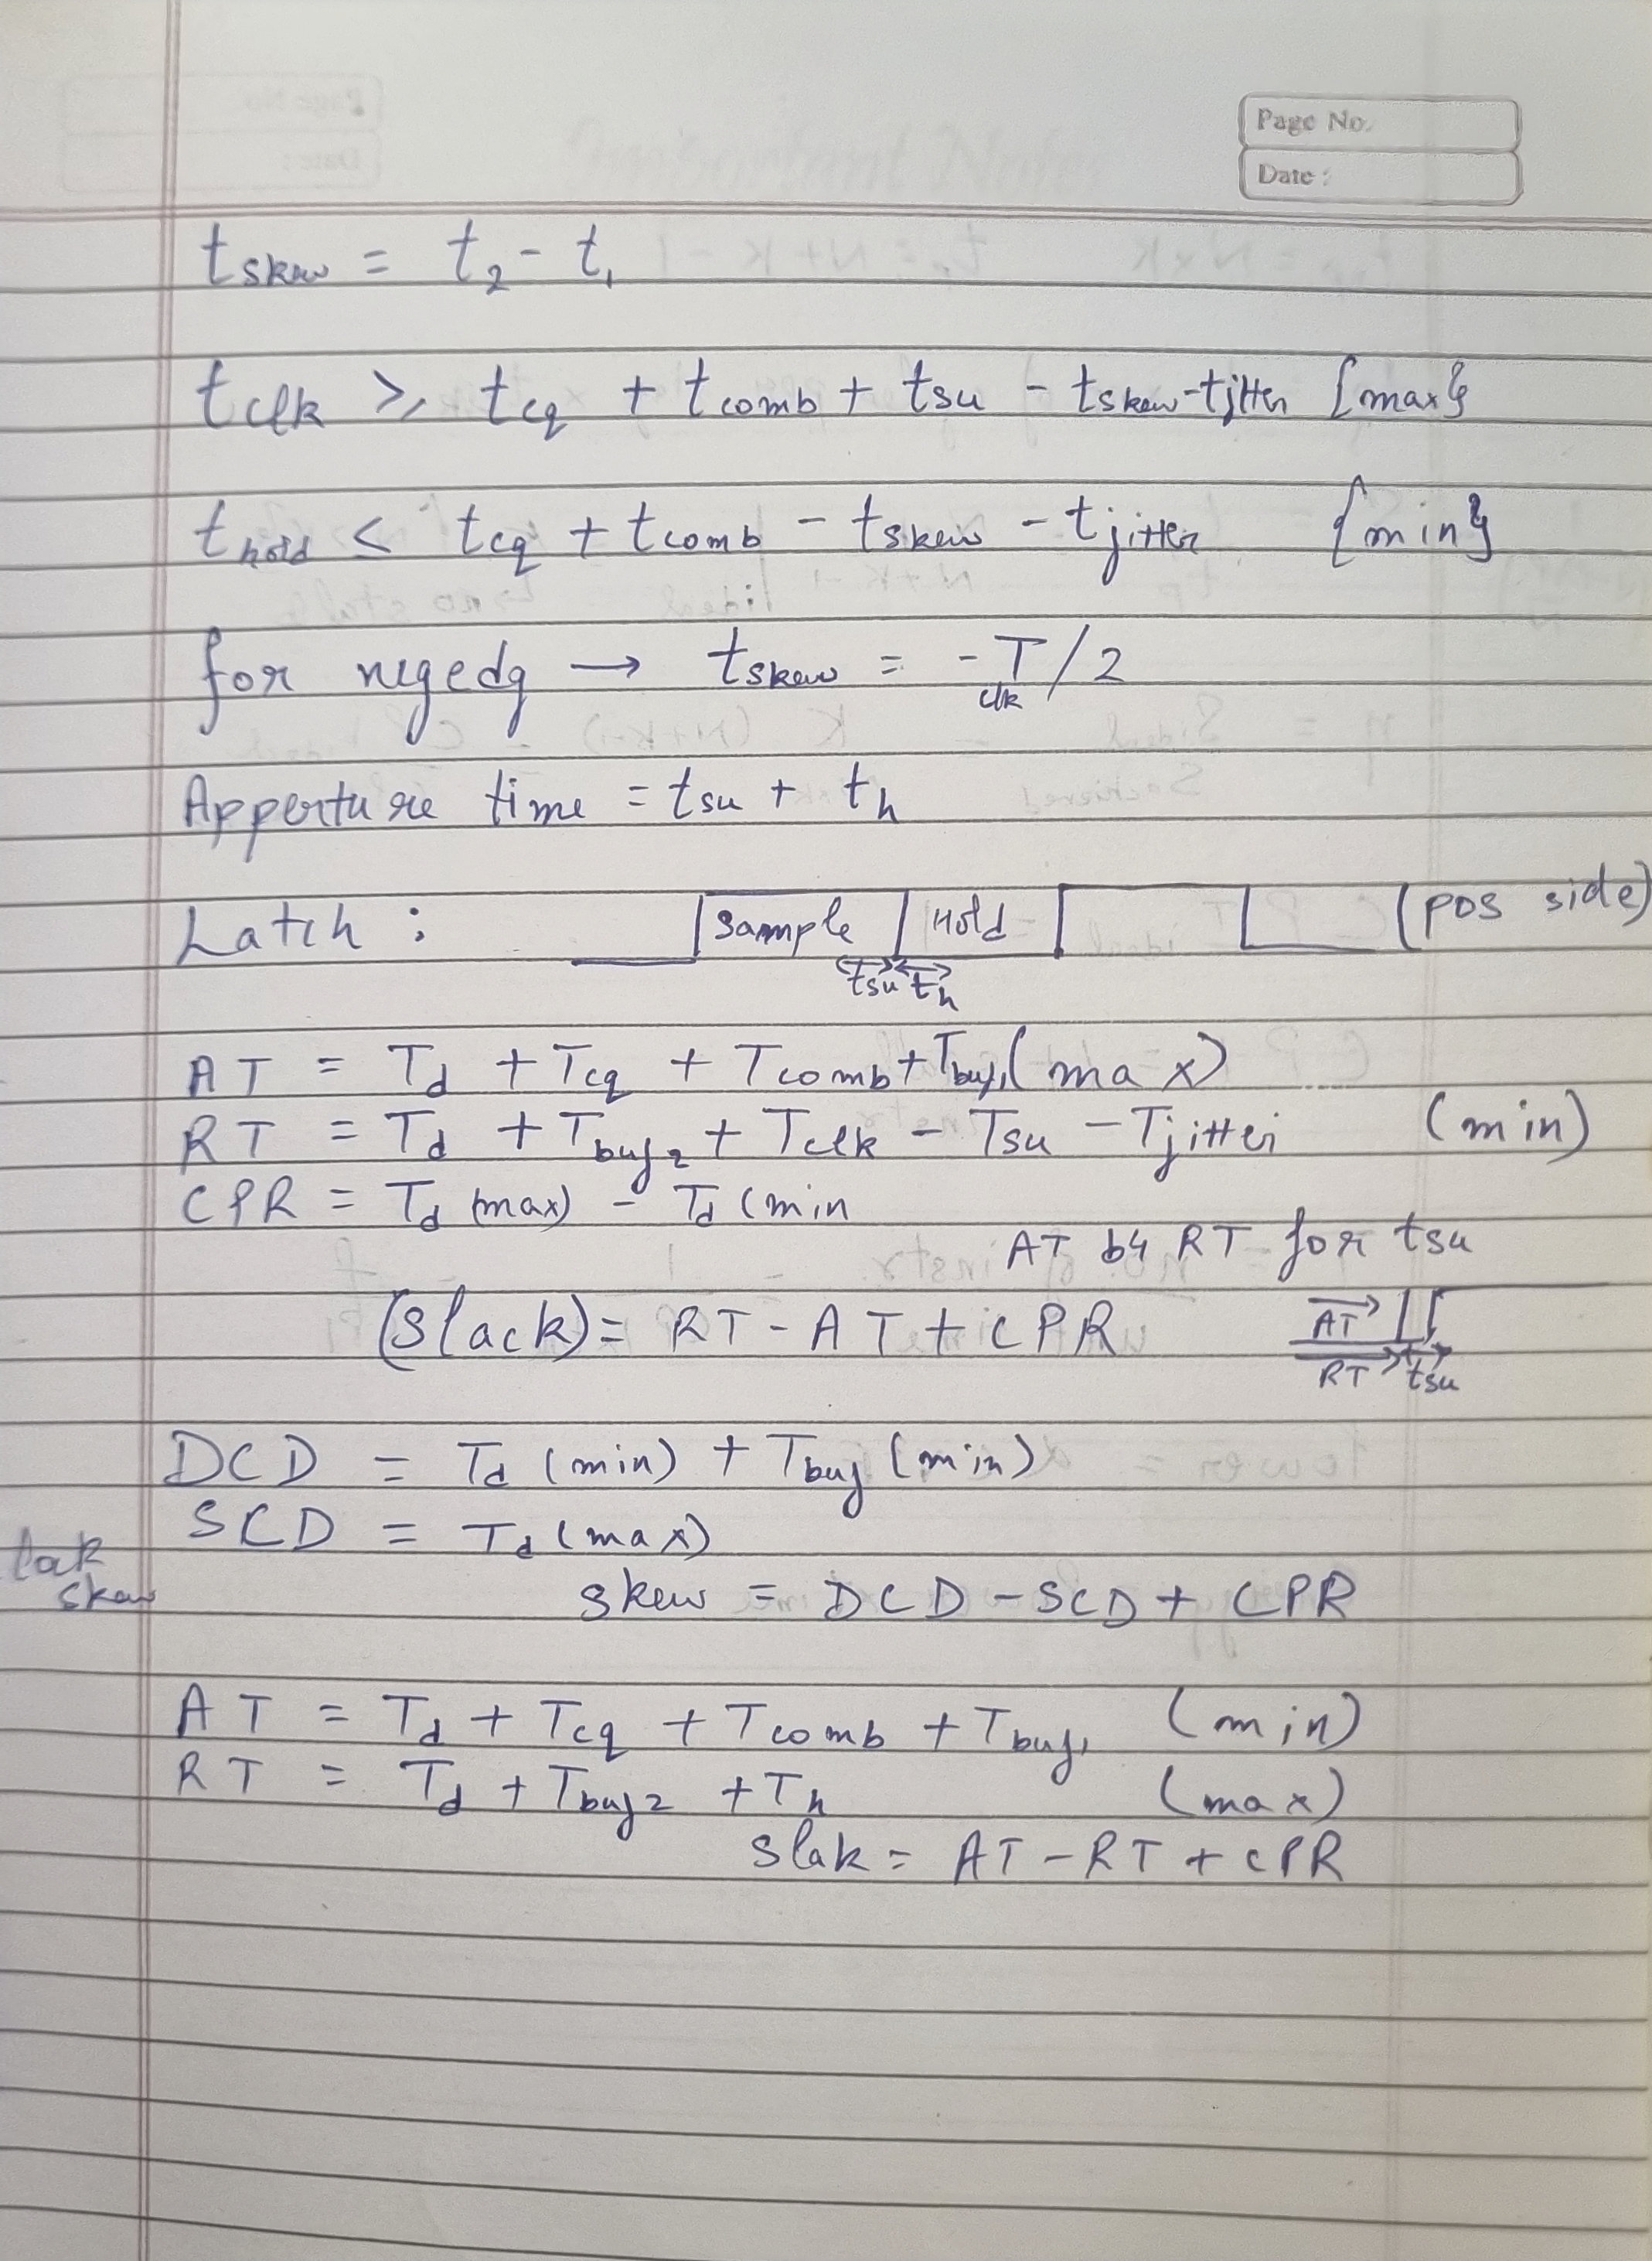 Page No.
Date :
t skew = t₂ - t₁
t clk ≥ tcq + tcomb + tsu - tskew - tjitter {max}
t hold ≤ tcq + tcomb - tskew - tjitter {min}
for negedg → tskew = -Tclk/2
Apperture time = tsu + th
Latch : Sample Hold (pos side)
tsu th
AT = Td + Tcq + Tcomb + Tbuf₁ (max)
RT = Td + Tbuf₂ + Tclk - Tsu - Tjitter (min)
CPR = Td (max) - Td (min
AT b4 RT for tsu
(Slack) = RT - AT + CPR AT
RT tsu
DCD = Td (min) + Tbuf (min)
SCD = Td (max)
skew
skew = DCD - SCD + CPR
AT = Td + Tcq + Tcomb + Tbuf₁ (min)
RT = Td + Tbuf₂ + Th (max)
Slak = AT - RT + CPR